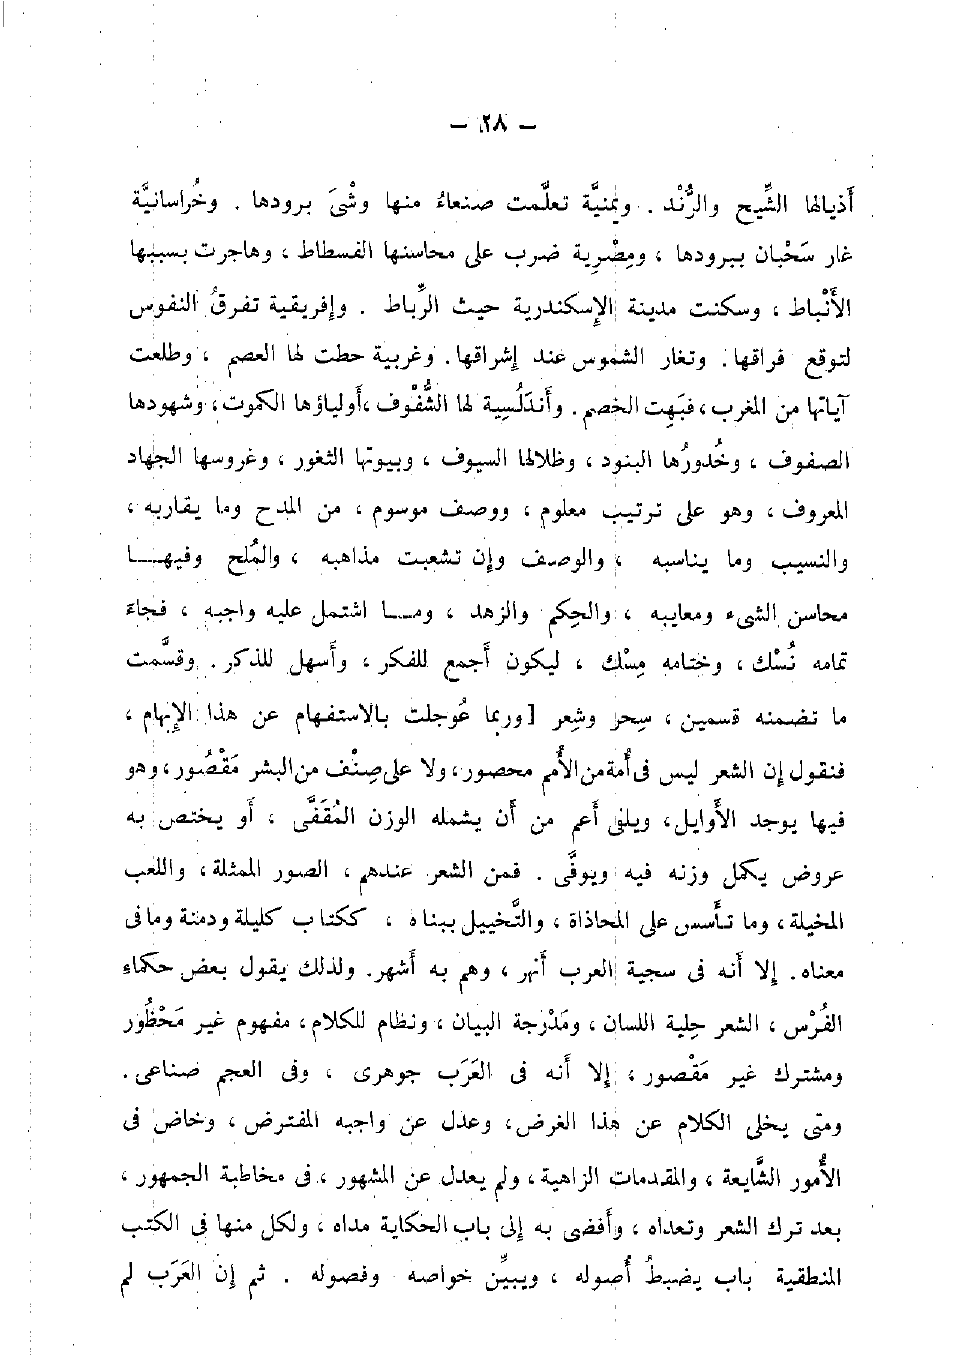 — ٢٨ —
أذيالها الشِّيح والرَّنْد . ويمنيَّة تعلَّمت صنعاءُ منها وشْىَ برودها . وخُراسانيَّة
غار سَحْبان ببرودها ، ومِصْرِية ضرب على محاسنها الفسطاط ، وهاجرت بسببها
الأَنْباط ، وسكنت مدينة الإِسكندرية حيث الرِّباط . وإفريقية تفرقُ النفوس
لتوقع فراقها . وتغار الشموس عند إشراقها . وغربية حطت لها العصم ، وطلعت
آياتها من المغرب ، فبَهِت الخصم . وأندلُسِية لها الشُّفُوف ، أولياؤها الكموت ، وشهودها
الصفوف ، وخُدورُها البنود ، وظلالها السيوف ، وبيوتها الثغور ، وغروسها الجهاد
المعروف ، وهو على ترتيب معلوم ، ووصف موسوم ، من المدح وما يقاربه ،
والنسيب وما يناسبه ، والوصف وإن تشعبت مذاهبه ، والمُلح وفيهـــا
محاسن الشىء ومعايبه ، والحِكم والزهد ، ومـــا اشتمل عليه واجبه ، فجاءَ
تمامه نُسْك ، وختامه مِسْك ، ليكون أجمع للفكر ، وأسهل للذكر . وقسَّمت
ما تضمنه قسمين ، سِحر وشِعر [ وربما عُوجلت بالاستفهام عن هذا الإبهام ،
فنقول إن الشعر ليس فى أُمة من الأُمم محصور ، ولا على صِنْف من البشر مَقْصُور ، وهو
فيها يوجد الأَوايل ، ويلفى أعم من أَن يشمله الوزن المُقَفَّى ، أو يختص به
عروض يكمل وزنه فيه ويوفَّى . فمن الشعر عندهم ، الصور الممثلة ، واللعب
المخيلة ، وما تأَسس على المحاذاة ، والتَّخييل بيناه ، ككتاب كليلة ودمنة وما فى
معناه . إلا أنه فى سجية العرب أنهر ، وهم به أشهر . ولذلك يقول بعض حكماء
الفُرْس ، الشعر حِلية اللسان ، ومَدْرجة البيان ، ونظام للكلام ، مفهوم غير مَحْظُور
ومشترك غير مَقْصور ، إلا أنه فى العَرَب جوهرى ، وفى العجم صناعى .
ومتى يخلى الكلام عن هذا الغرض ، وعدل عن واجبه المفترض ، وخاض فى
الأُمور الشَّايعة ، والمقدمات الزاهية ، ولم يعدل عن المشهور ، فى مخاطبة الجمهور ،
بعد ترك الشعر وتعداه ، وأفضى به إلى باب الحكاية مداه ، ولكل منها فى الكتب
المنطقية باب يضبطُ أُصوله ، ويبيِّن خواصه وفصوله . ثم إن العَرَب لم